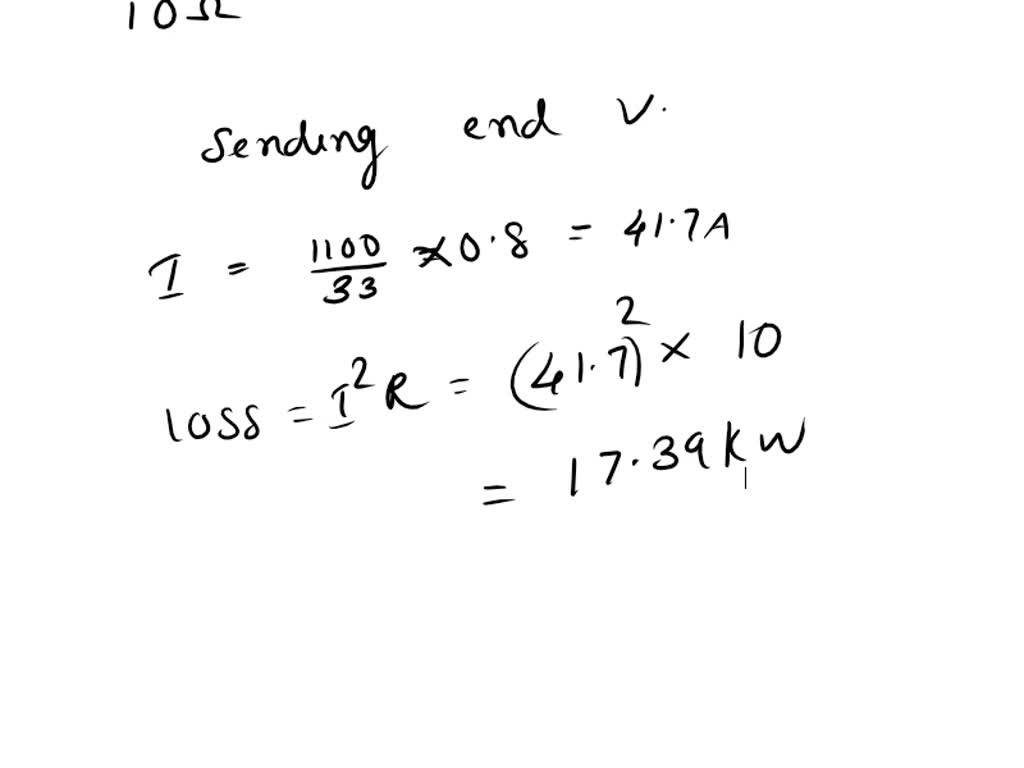 10Ω
Sending end V.
I = 1100/33 × 0.8 = 41.7A
loss = I²R = (41.7)² × 10
= 17.39kW